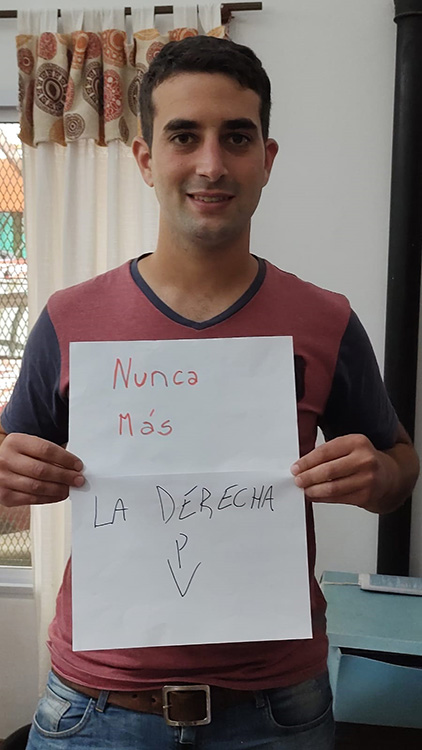 Nunca
Más
LA DERECHA
P
V